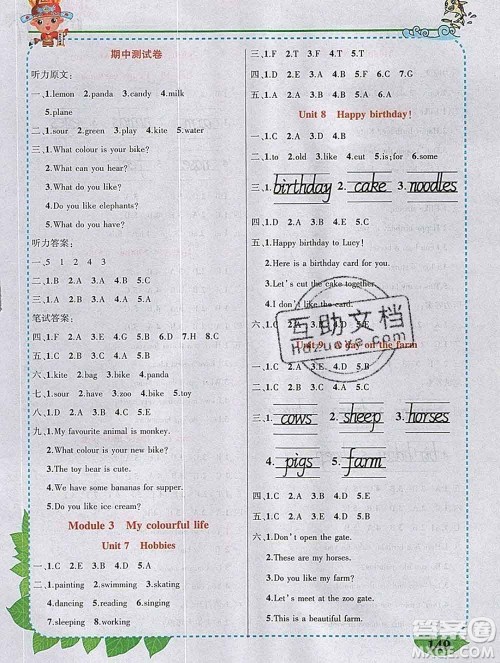 期中测试卷
听力原文：
一、1.lemon 2.panda 3.candy 4.milk
5.plane
二、1.sour 2.green 3.play 4.kite 5.water
三、1.What colour is your bike?
2.What can you hear?
3.What do you like?
4.Do you like elephants?
5.What do you have?
听力答案：
一、5 1 2 4 3
二、1.B 2.A 3.A 4.B 5.A
三、1.C 2.B 3.A 4.A 5.C
笔试答案：
四、1.F 2.A 3.G 4.B 5.E 6.D 7.H 8.C
五、1.C 2.B 3.A 4.B 5.A
六、1.kite 2.bag 3.bike 4.panda
七、1.sour 2.have 3.zoo 4.bike 5.toy
八、1.B 2.A 3.D 4.C 5.E
九、1.My favourite animal is monkey.
2.What colour is your new bike?
3.The toy bear is cute.
4.We have some bananas for supper.
5.Do you like ice cream?
Module 3 My colourful life
Unit 7 Hobbies
一、1.C 2.B 3.A 4.B 5.A
二、1.painting 2.swimming 3.skating
4.dancing 5.reading 6.singing
7.sleeping 8.working
三、1.F 2.T 3.F 4.T 5.T
四、1.D 2.E 3.A 4.B 5.C 6.F 7.G
五、1.A 2.A 3.B 4.A 5.C
Unit 8 Happy birthday!
一、1.C 2.C 3.A 4.B 5.A
二、1.to 2.old 3.like 4.cut 5.is;for 6.some
三、1.birthday 2.cake 3.noodles
四、1.D 2.A 3.B 4.E 5.C
五、1.Happy birthday to Lucy!
2.Here is a birthday card for you.
3.Let's cut the cake together.
4.I don't like the card.
六、1.C
互助文档
hdzuoye.com
Unit 9 A day on the farm
3.cows sheep horses
4.pigs 5.farm
四、1.C 2.A 3.B 4.D 5.E
五、1.E 2.A 3.B 4.D 5.C
六、1.Don't open the gate.
2.These are my horses.
3.Do you like my farm?
4.Let's meet at the zoo gate.
5.This is a beautiful farm.